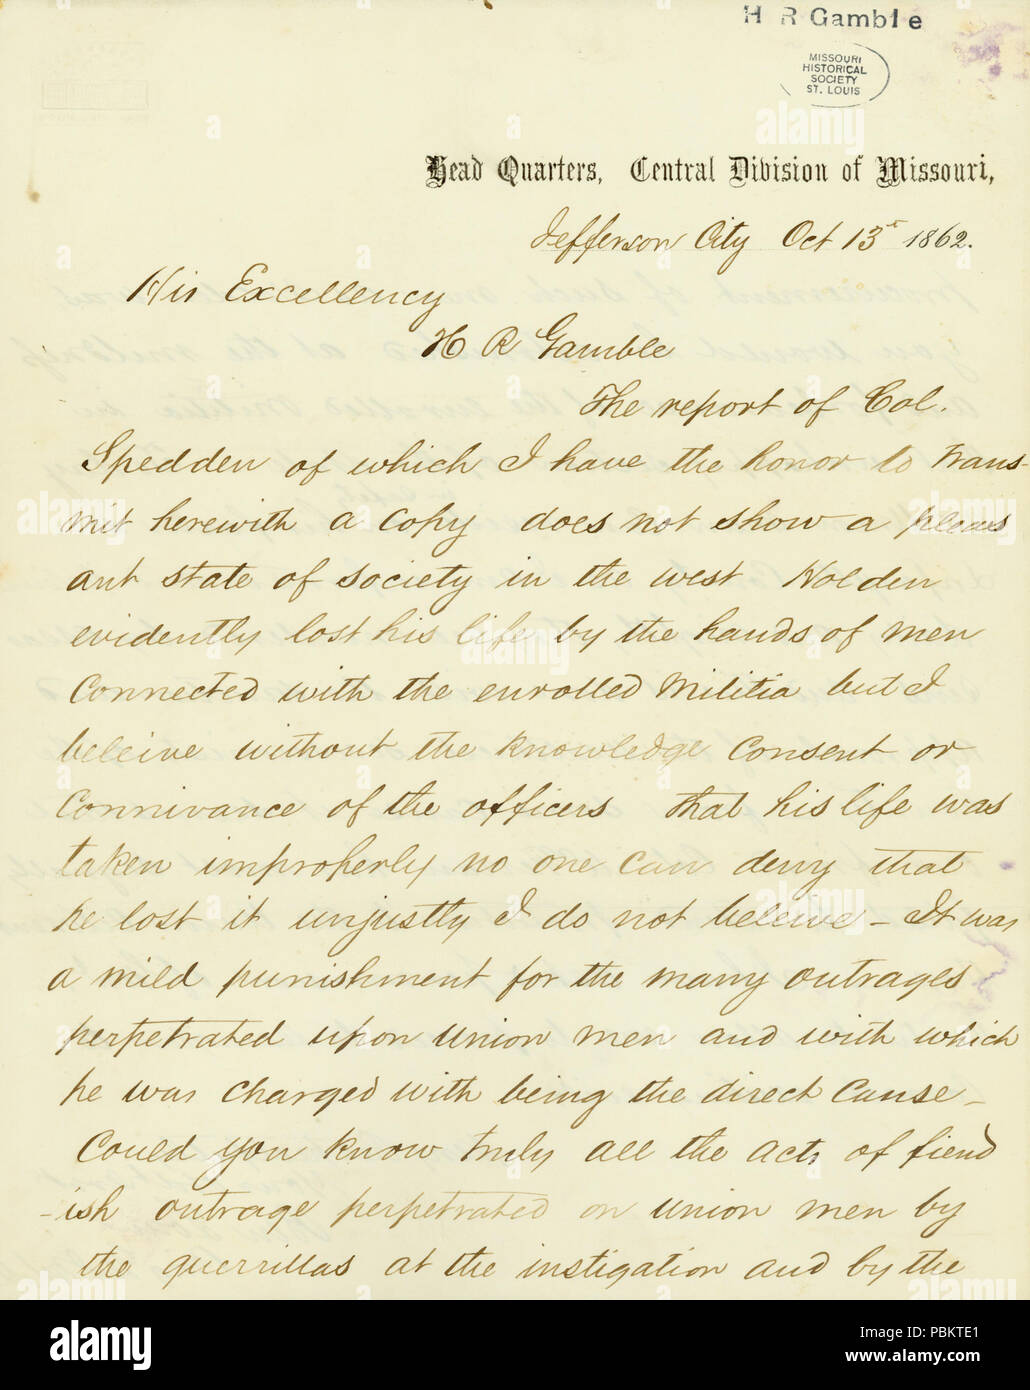 H R Gamble
MISSOURI
HISTORICAL
SOCIETY
ST. LOUIS
Head Quarters, Central Division of Missouri,
Jefferson City Oct 13th 1862.
His Excellency
H R Gamble
The report of Col.
Spedden of which I have the honor to trans-
mit herewith a copy does not show a pleas
ant state of society in the west Holden
evidently lost his life by the hands of men
connected with the enrolled militia but I
beleive without the knowledge consent or
connivance of the officers that his life was
taken improperly no one can deny that
he lost it unjustly I do not beleive – It was
a mild punishment for the many outrages
perpetrated upon union men and with which
he was charged with being the direct cause –
Could you know truly all the acts of fiend
-ish outrage perpetrated on union men by
the guerrillas at the instigation and by the
alamy
Image ID: PBKTE1
www.alamy.com